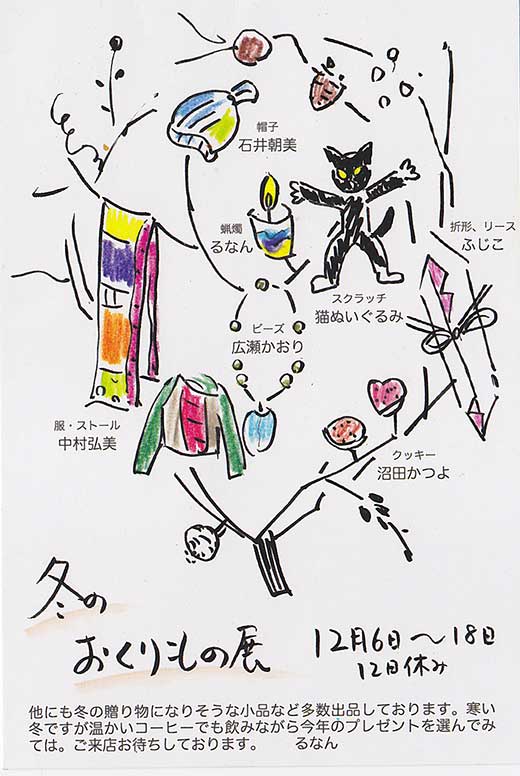 帽子
石井朝美
蝋燭
るなん
折形、リース
ふじこ
スクラッチ
猫ぬいぐるみ
ビーズ
広瀬かおり
服・ストール
中村弘美
クッキー
沼田かつよ
冬の
おくりもの展
12月6日〜18日
12日休み
他にも冬の贈り物になりそうな小品など多数出品しております。寒い
冬ですが温かいコーヒーでも飲みながら今年のプレゼントを選んでみ
ては。ご来店お待ちしております。　　るなん